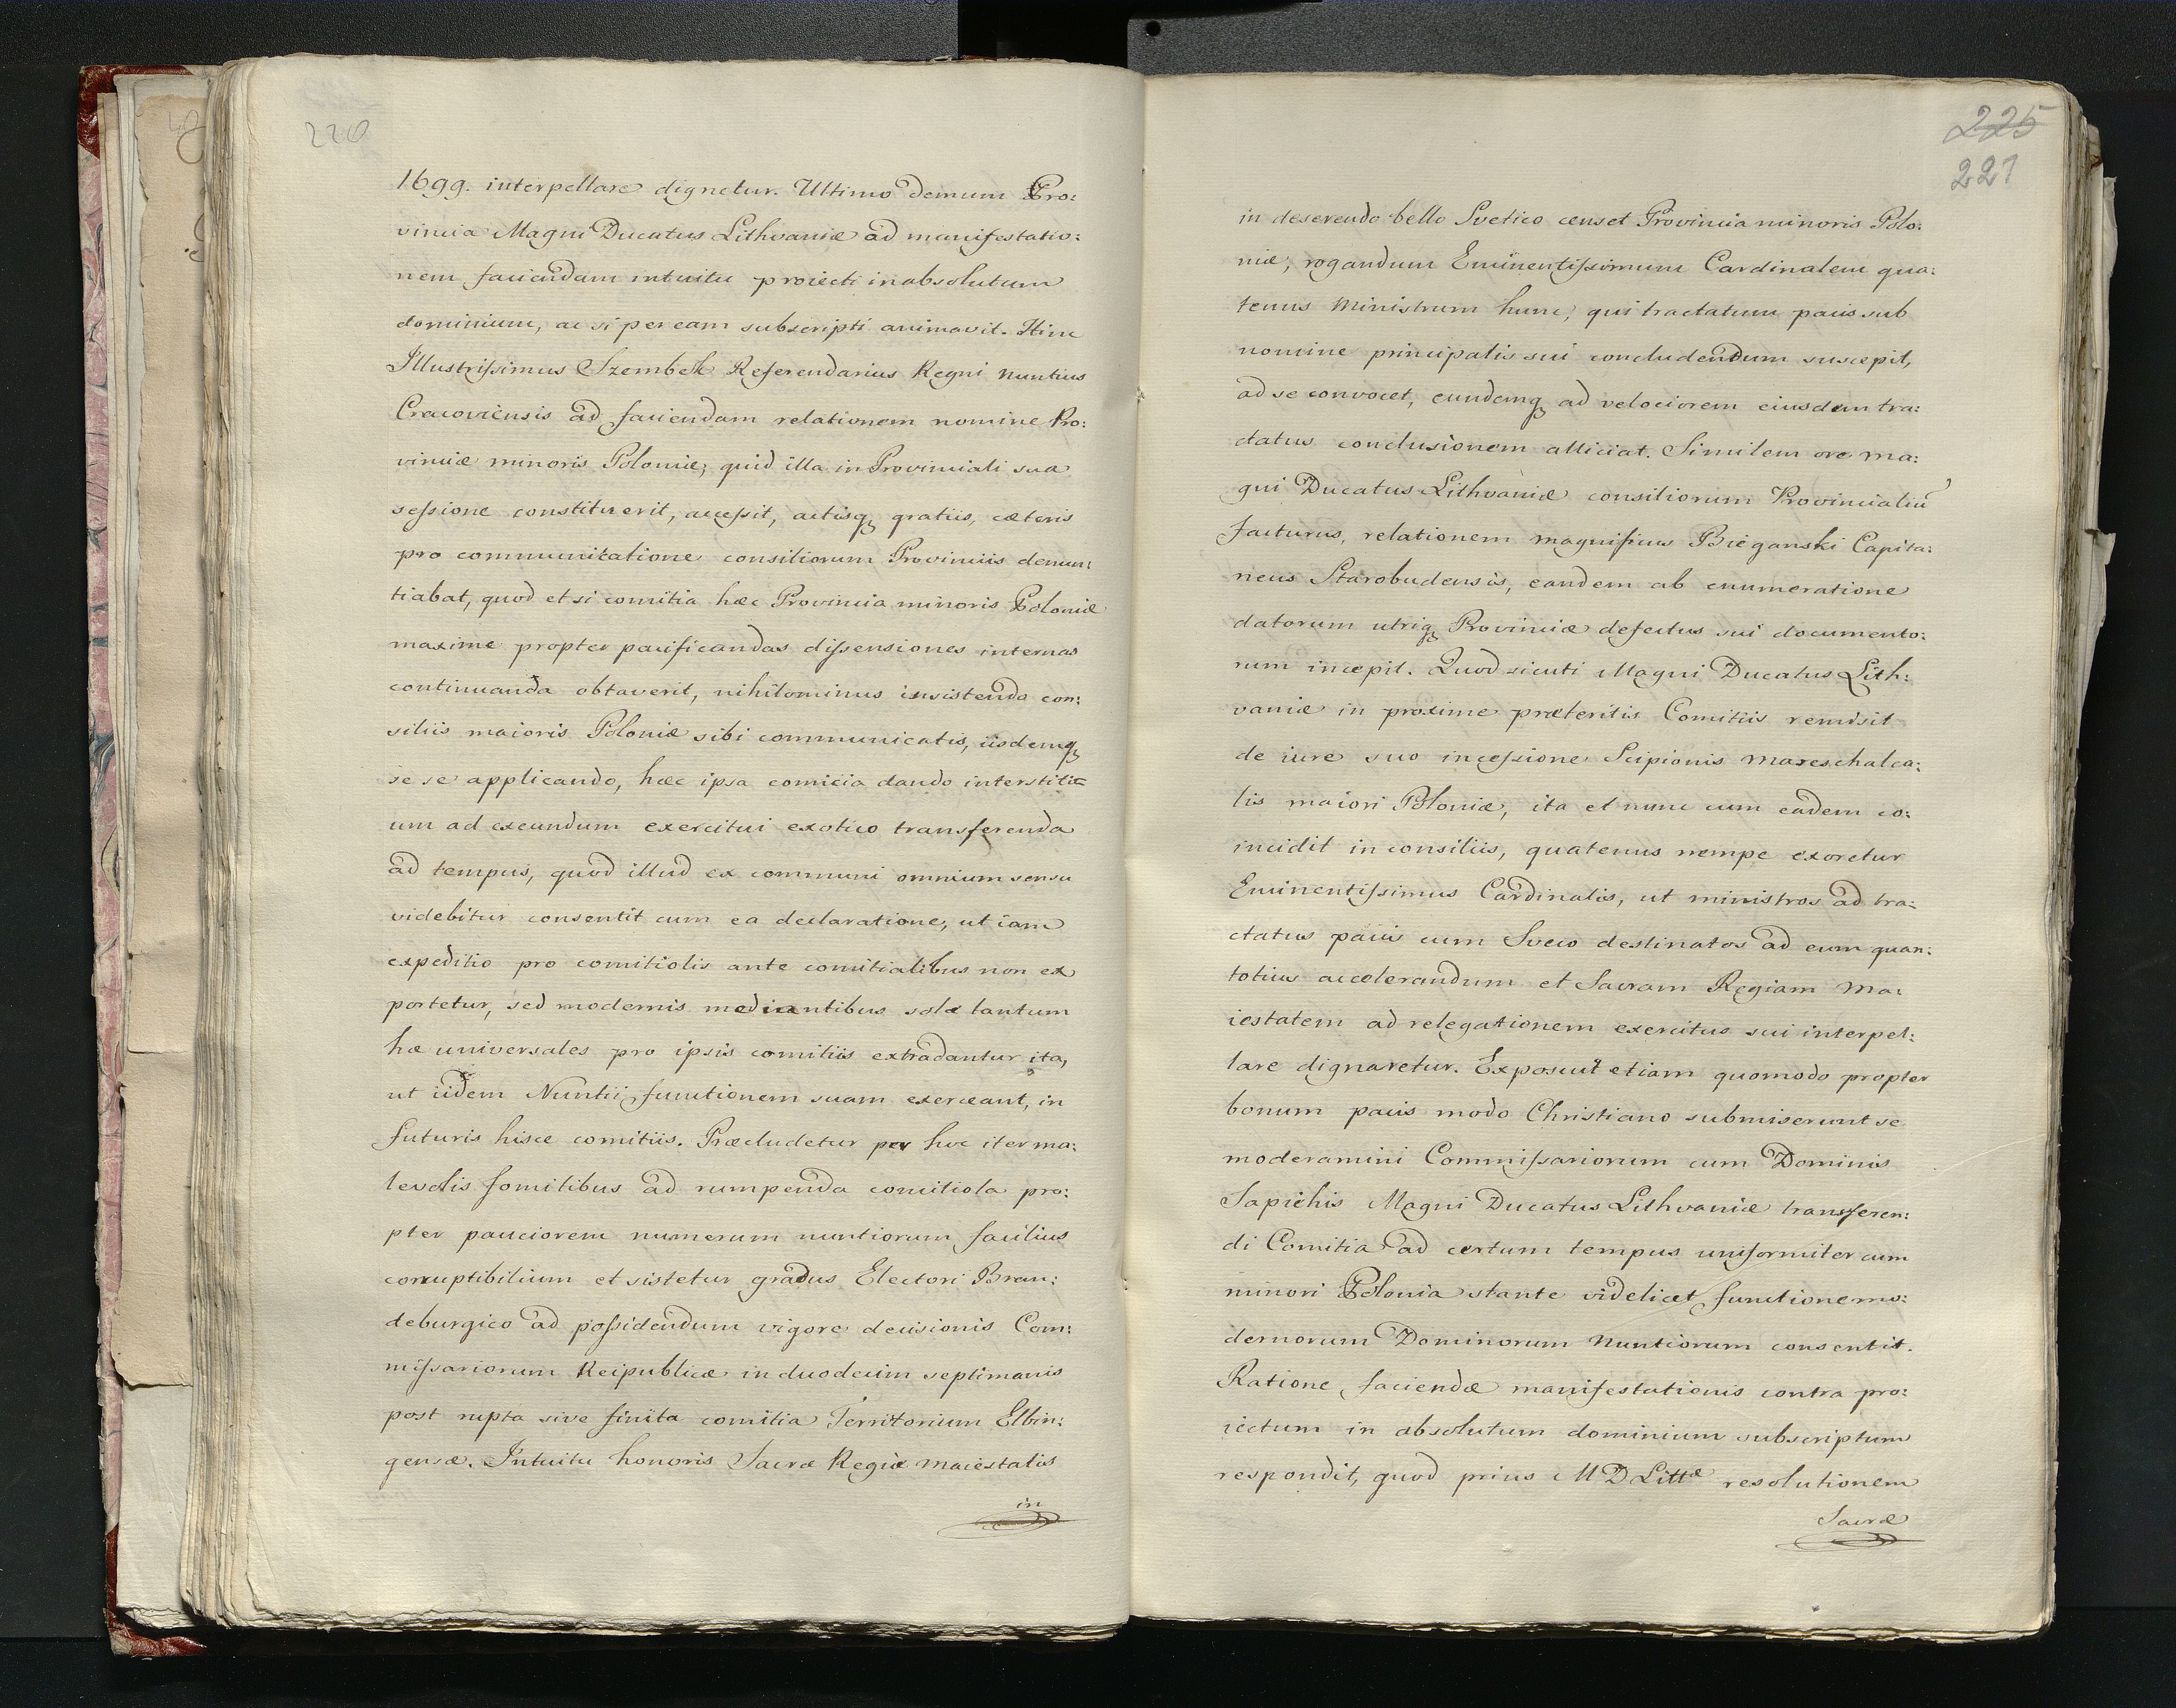 220
1699. interpellare dignetur. Ultimo demum Pro:
vincia Magni Ducatus Lithvaniæ ad manifestatio:
nem faciendam intuitu proiecti in absolutum
dominium, ac si per eam subscripti animavit. Hinc
Illustrissimus Szembek Referendarius Regni Nuntius
Cracoviensis ad faciendam relationem nomine Pro:
vinciæ minoris Poloniæ, quid illa in Provinciali sua
sessione constituerit, accessit, actisq gratiis, cæteris
pro communicatione consiliorum Provinciis denun:
tiabat, quod etsi comitia hæc Provincia minoris Poloniæ
maxime propter pacificandas dissensiones internas
continuanda obtaverit, nihilominus insistendo con:
siliis maioris Poloniæ sibi communicatis, iisdemq
se se applicando, hæc ipsa comicia dando interstiti
um ad exeundum exercitui exotico transferenda
ad tempus, quod illud ex communi omnium sensu
videbitur consentit cum ea declaratione, ut iam
expeditio pro comitiolis ante comitialibus non ex
portetur, sed modernis mediantibus solæ tantum
hæ universales pro ipsis comitiis extradantur ita,
ut iidem Nuntii functionem suam exerceant, in
futuris hisce comitiis. Præcludetur per hoc iter ma:
levolis fomitibus ad rumpenda comitiola pro:
pter pauciorem numerum nuntiorum facilius
corruptibilium et sistetur gradus Electori Bran:
deburgico ad possidendum vigore decisionis Com:
missariorum Reipublicæ in duodecim septimanis
post rupta sive finita comitia Territorium Elbin:
gense. Intuitu honoris Sacræ Regiæ Maiestatis
in
225
221
in deserendo bello Svetico censet Provincia minoris Polo:
niæ, rogandum Eminentissimum Cardinalem qua:
tenus Ministrum hunc, qui tractatum pacis sub
nomine principalis sui concludendum suscepit,
ad se convocet, eundemq ad velociorem eiusdem tra:
ctatus conclusionem alliciat. Similem ore Ma:
gni Ducatus Lithvaniæ consiliorum Provincialiū
facturus, relationem magnificus Bieganski Capita:
neus Starobudensis, eandem ab enumeratione
datorum utriq Provinciæ defectus sui documento:
rum incepit. Quod sicuti Magni Ducatus Lith:
vaniæ in proxime præteritis Comitiis remisit
de iure suo in cessione Scipionis Mareschalca:
lis maiori Poloniæ, ita et nunc cum eadem co:
incidit in consiliis, quatenus nempe exoretur
Eminentissimus Cardinalis, ut ministros ad tra:
ctatus pacis cum Sveco destinatos ad eum quan:
totius accelerandum et Sacram Regiam Ma:
iestatem ad relegationem exercitus sui interpel:
lare dignaretur. Exposuit etiam quomodo propter
bonum pacis modo Christiano submiserunt se
moderamini Commissariorum cum Dominis
Sapiehis Magni Ducatus Lithvaniæ transferen:
di Comitia ad certum tempus uniformiter cum
minori Polonia stante videlicet functione mo:
dernorum Dominorum Nuntiorum consentit.
Ratione faciendæ manifestationis contra pro:
iectum in absolutum dominium subscriptum
respondit, quod prius M D Littæ resolutionem
Sacræ